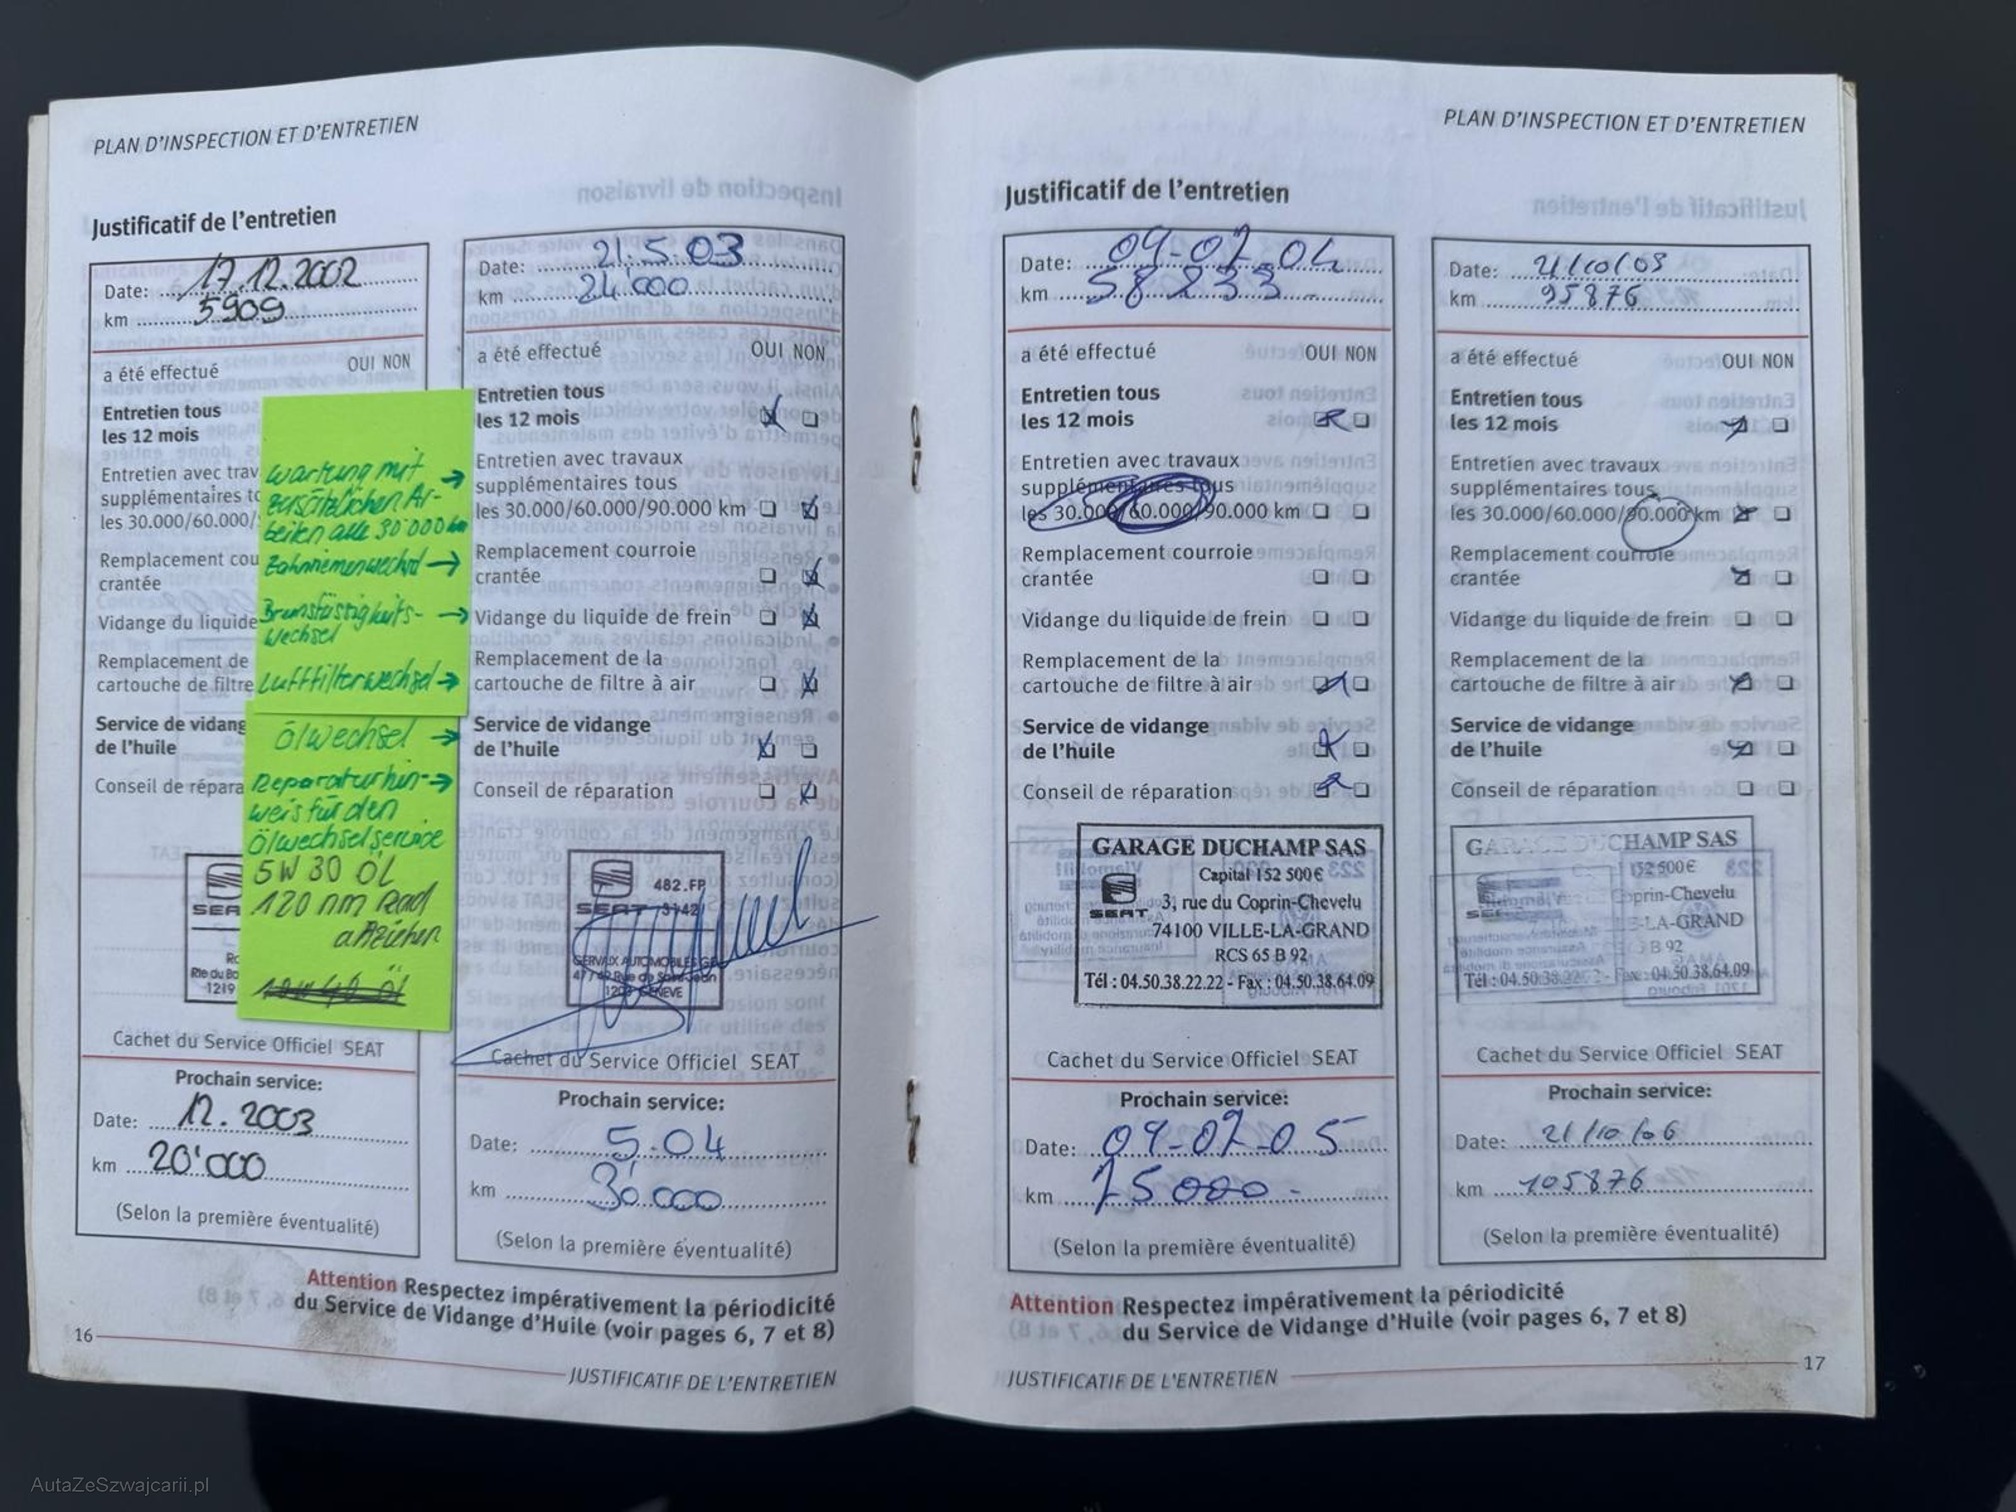 PLAN D'INSPECTION ET D'ENTRETIEN
Justificatif de l'entretien
Date: 17.12.2002
km 5909
a été effectué OUI NON
Entretien tous
les 12 mois
Entretien avec trav
supplémentaires to
les 30.000/60.000/
Remplacement cou
crantée
Vidange du liquide
Remplacement de
cartouche de filtre
Service de vidang
de l'huile
Conseil de répara
Wartung mit →
zusätzlichen Ar-
beiten alle 30'000 km
Zahnriemenwechsel →
Bremsflüssigkeits- →
wechsel
Luftfilterwechsel →
Ölwechsel →
Reparaturhin- →
weis für den
Ölwechselservice
5W 30 ÖL
120 nm Rad
anziehen
SEA
1219
Cachet du Service Officiel SEAT
Prochain service:
Date: 12.2003
km 20'000
(Selon la première éventualité)
Date: 21.5.03
km 24'000
a été effectué OUI NON
Entretien tous
les 12 mois
Entretien avec travaux
supplémentaires tous
les 30.000/60.000/90.000 km
Remplacement courroie
crantée
Vidange du liquide de frein
Remplacement de la
cartouche de filtre à air
Service de vidange
de l'huile
Conseil de réparation
482.FP
SEAT 3142
SERVAUX AUTOMOBILES
GENEVE
Cachet du Service Officiel SEAT
Prochain service:
Date: 5.04
km 30'000
(Selon la première éventualité)
Attention Respectez impérativement la périodicité
du Service de Vidange d'Huile (voir pages 6, 7 et 8)
16
JUSTIFICATIF DE L'ENTRETIEN
PLAN D'INSPECTION ET D'ENTRETIEN
Justificatif de l'entretien
Date: 09-07-04
km 58233
a été effectué OUI NON
Entretien tous
les 12 mois
Entretien avec travaux
supplémentaires tous
les 30.000/60.000/90.000 km
Remplacement courroie
crantée
Vidange du liquide de frein
Remplacement de la
cartouche de filtre à air
Service de vidange
de l'huile
Conseil de réparation
GARAGE DUCHAMP SAS
Capital 152 500 €
SEAT 3, rue du Coprin-Chevelu
74100 VILLE-LA-GRAND
RCS 65 B 92
Tél : 04.50.38.22.22 - Fax : 04.50.38.64.09
Cachet du Service Officiel SEAT
Prochain service:
Date: 09-07-05
km 75000
(Selon la première éventualité)
Date: 21/10/05
km 95876
a été effectué OUI NON
Entretien tous
les 12 mois
Entretien avec travaux
supplémentaires tous
les 30.000/60.000/90.000 km
Remplacement courroie
crantée
Vidange du liquide de frein
Remplacement de la
cartouche de filtre à air
Service de vidange
de l'huile
Conseil de réparation
GARAGE DUCHAMP SAS
152 500 €
Coprin-Chevelu
E-LA-GRAND
B 92
Tél : 04.50.38.22.22 - Fax : 04.50.38.64.09
Cachet du Service Officiel SEAT
Prochain service:
Date: 21/10/06
km 105876
(Selon la première éventualité)
Attention Respectez impérativement la périodicité
du Service de Vidange d'Huile (voir pages 6, 7 et 8)
17
JUSTIFICATIF DE L'ENTRETIEN
AutaZeSzwajcarii.pl